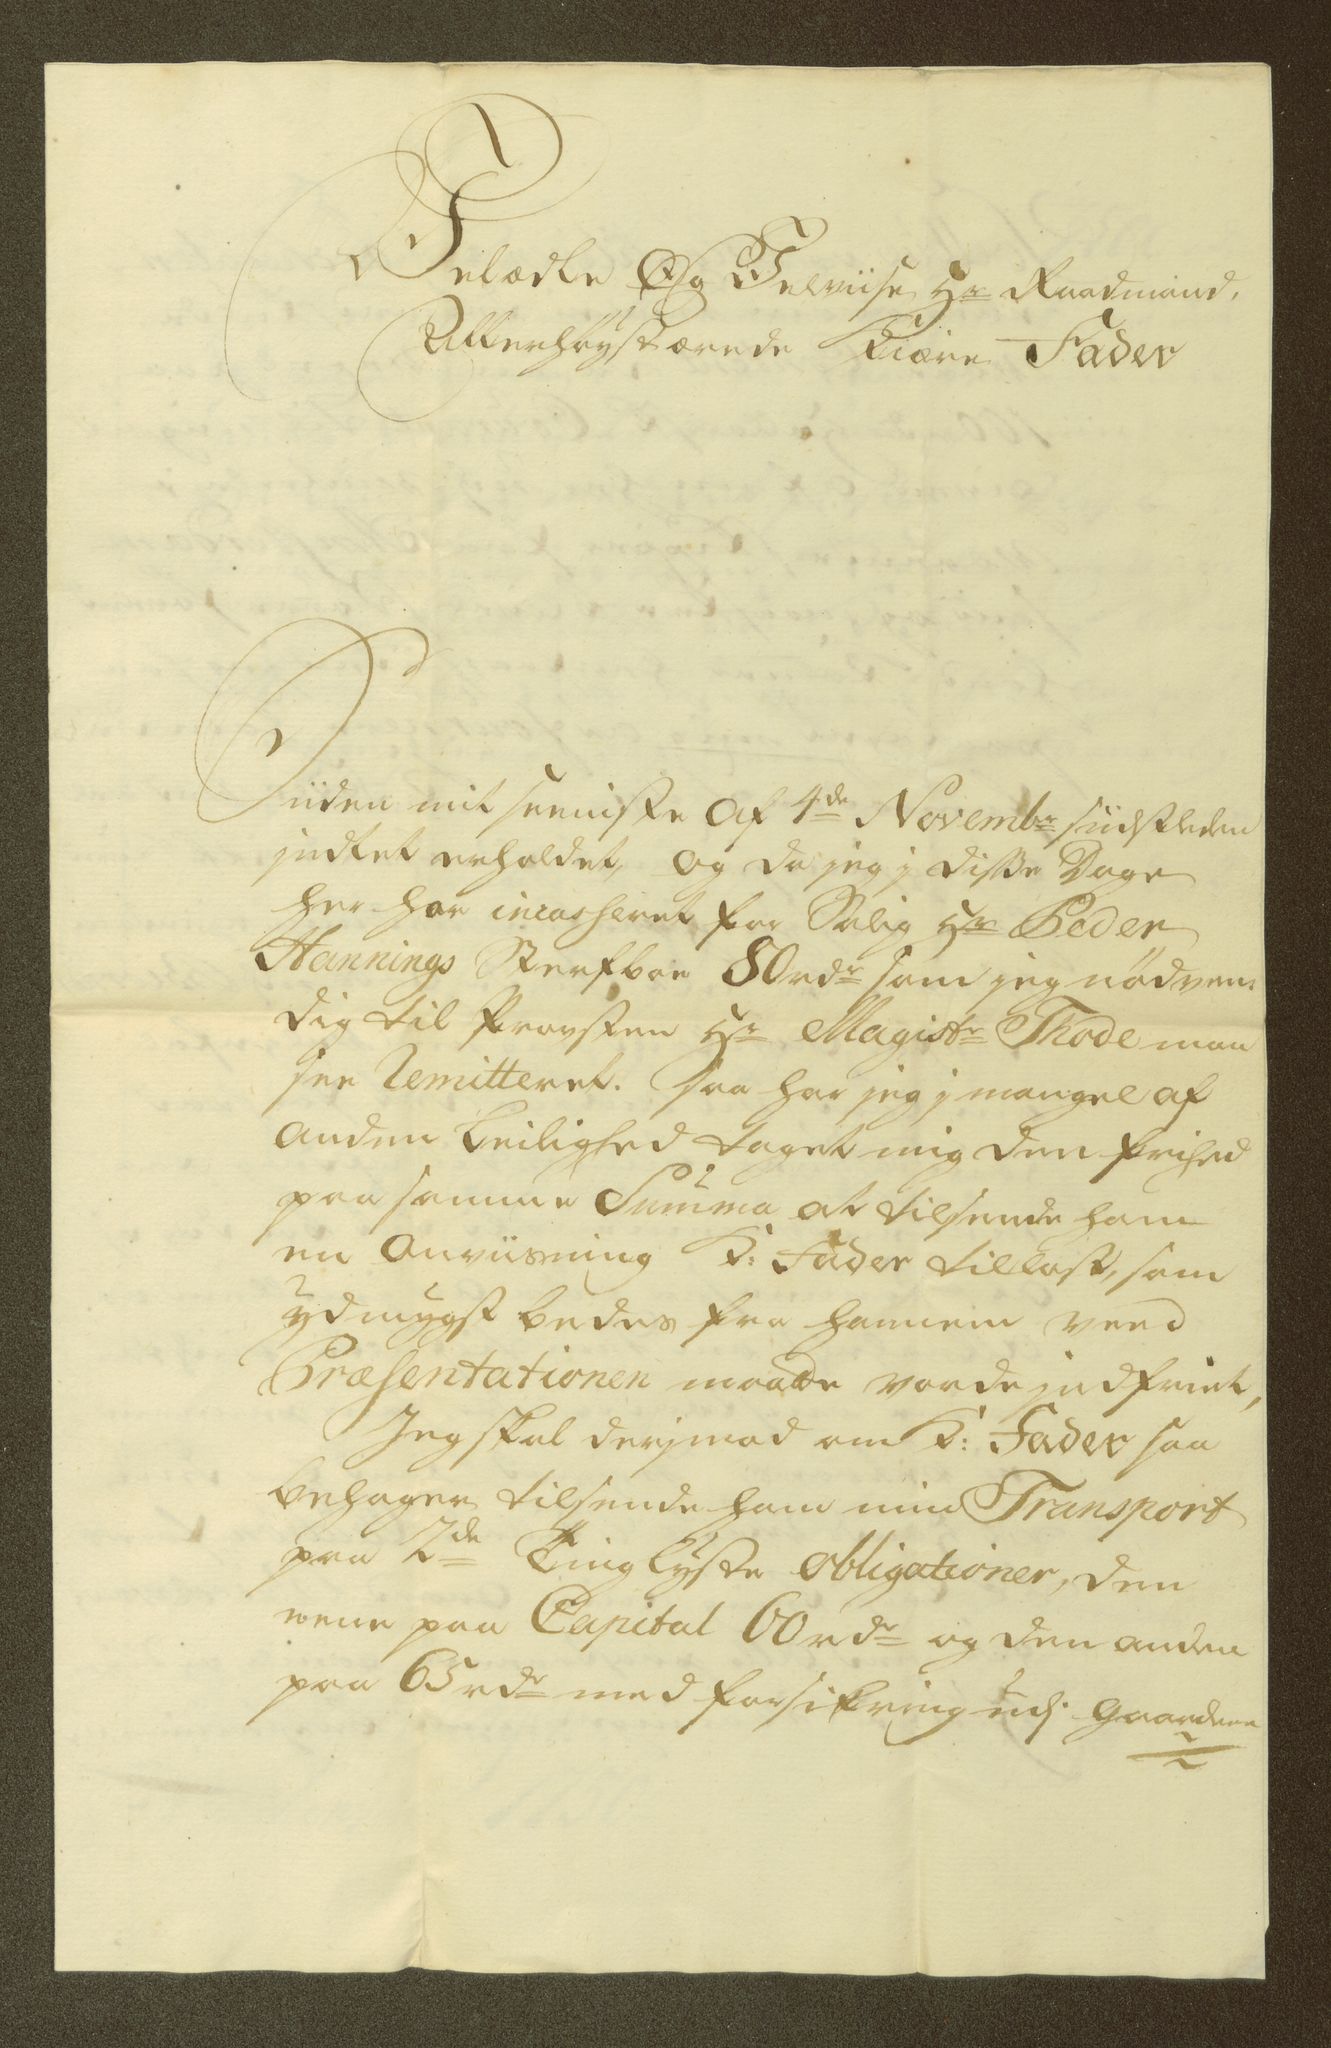 Velædle Og Velviise Hr Raadmand,
Allerhøystærede Kiære Fader
Siiden mit seeniste af 4de Novembr siidstleden
indtet erholdet, og da jeg i disse Dage
her har incasseret for Salig Hr Peder
Hannings Sterfboe 80 rdr som jeg nødven-
dig til Provsten Hr Magistr Thode maa
see Remitteret. Saa har jeg i mangel af
anden Leilighed taget mig den frihed
paa samme Summa at tilsende ham
en Anviisning K: Fader til last, som
ydmygst bedes fra hannem veed
Præsentationen maatte vorde indfriet,
Jeg skal derimod om K: Fader saa
behager tilsende ham min Transport
paa 2de Tinglyste obligationer, den
eene paa Capital 60 rdr og den anden
paa 65 rdr med forsikring udj Gaardene